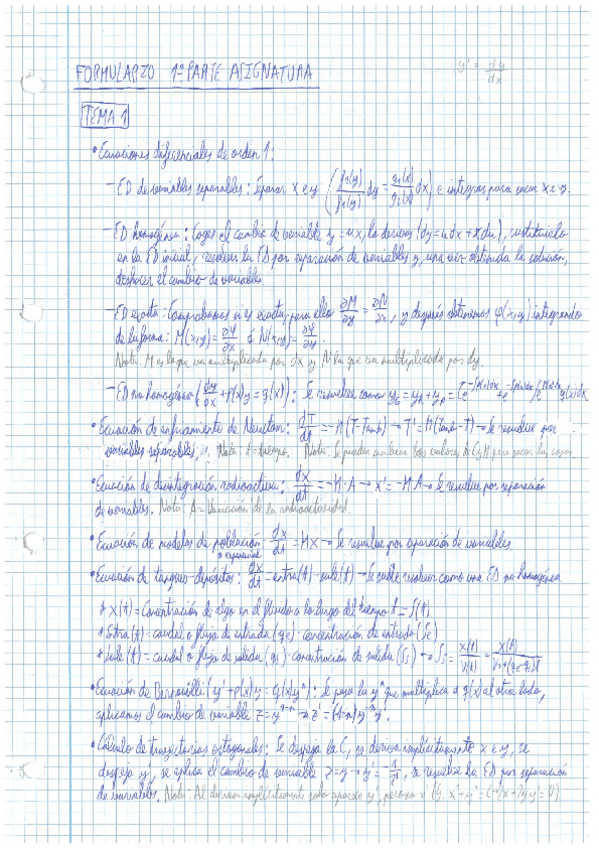 y' = dy/dx
FORMULARIO 1ª PARTE ASIGNATURA
TEMA 1
• Ecuaciones diferenciales de orden 1:
– ED de variables separables: Separar x e y dy = dx e integrar para sacar x e y.
– ED homogénea: Coges el cambio de variable y = ux, lo derivas (dy = u dx + x du), sustituirlo
en la ED inicial, resolver la ED por separación de variables y, una vez obtenida la solución,
deshacer el cambio de variable
– ED exacta: Comprobamos si es exacta, para ello ∂M/∂y = ∂N/∂x, y después obtenemos φ(x,y) integrando
de la forma: M(x,y) = ∂φ/∂x N(x,y) = ∂φ/∂y.
Nota: M es la que va multiplicada por dx y N la que va multiplicada por dy.
– ED no homogénea (dy/dx + p(x)y = g(x)): Se resuelve como
• Ecuación de enfriamiento de Newton: dT/dt = -K(T-Tamb) → T' = K(Tamb-T) → Se resuelve por
variables separables. Nota: t = tiempo. Nota: Se pueden cambiar los valores de C y K para sacar las cosas
• Ecuación de desintegración radioactiva: dx/dt = -K·A → x' = -K·A → Se resuelve por separación
de variables. Nota: A = Variación de la radioactividad
• Ecuación de modelos de población dx/dt = Kx → Se resuelve por separación de variables
o exponencial
• Ecuación de tanques-depósitos: dx/dt = entra(t) - sale(t) → Se suele resolver como una ED no homogénea
* x(t) = Concentración de algo en el fluido a lo largo del tiempo t = f(t)
* Entra(t) = caudal o flujo de entrada (qe) · concentración de entrada (Se)
* Sale(t) = caudal o flujo de salida (qs) · concentración de salida (Ss) → Ss = x(t)/V(t) = x(t)/V₀+(qe-qs)t
• Ecuación de Bernoulli (y' + p(x)y = g(x)yⁿ): Se pasa la yⁿ que multiplica a g(x) al otro lado,
aplicamos el cambio de variable z = y¹⁻ⁿ → z' = (1-n)y⁻ⁿy'.
• Cálculo de trayectorias ortogonales: Se despeja la C, se deriva implícitamente x e y, se
despeja y', se aplica el cambio de variable se resuelve la ED por separación
de variables. Nota: Al derivar implícitamente